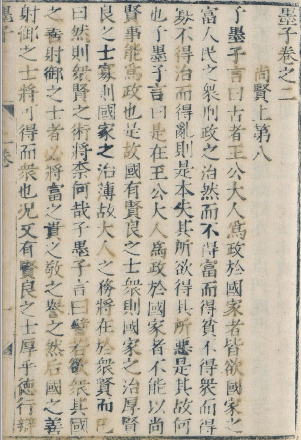 墨子卷之二
尚賢上第八
子墨子言曰古者王公大人爲政於國家者皆欲國家之
富人民之衆刑政之治然而不得富而得貧不得衆而得
寡不得治而得亂則是本失其所欲得其所惡是其故何
也子墨子言曰是在王公大人爲政於國家者不能以尚
賢事能爲政也是故國有賢良之士衆則國家之治厚賢
良之士寡則國家之治薄故大人之務將在於衆賢而已
曰然則衆賢之術將柰何哉子墨子言曰譬若欲衆其國
之善射御之士者必將富之貴之敬之譽之然后國之善
射御之士將可得而衆也况又有賢良之士厚乎德行辯
墨子